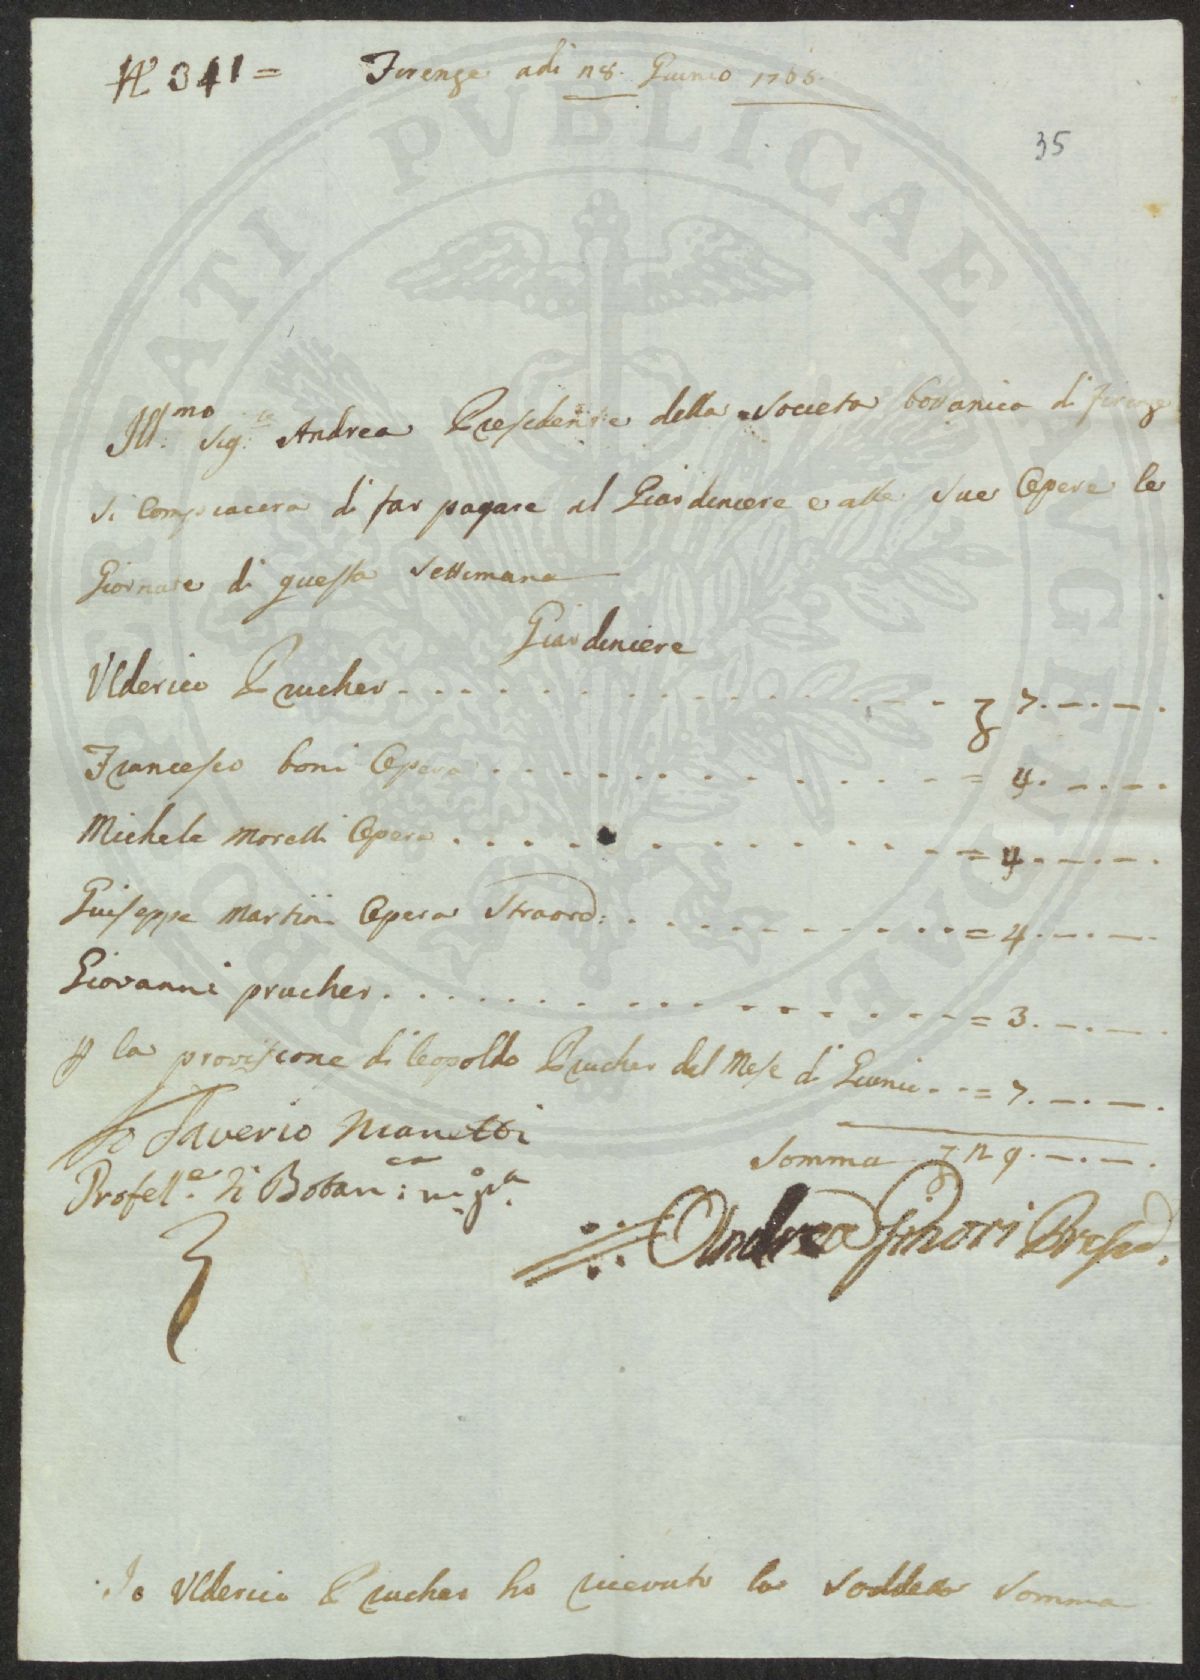 N° 341 = Firenze adi 28. Giunio 1766.
35
Ill:mo Sig:re Andrea Presidente della Societa botanica di firenze
si Compiacera di far pagare al Giardiniere e alle Sue Opere le
Giornate di questa Settimana
Giardiniere
Ulderico Prucher - - - - - £ 7.-.-.
Francesco boni Opera - - - - - = 4.-.-.
Michele Morelli Opera - - - - - = 4.-.-.
Giuseppe Martini Opera Straord: - - - - - = 4.-.-.
Giovanni prucher - - - - - = 3.-.-.
p la provisione di leopoldo Prucher del Mese di Giunio - - = 7.-.-.
Somma £ 29.-.-.
Io Saverio Manetti
Profess.e di Botan:ca
Andrea Ginori Presid.
Io Ulderico Prucher ho ricevuto la Soddetta Somma
PVBLICAE